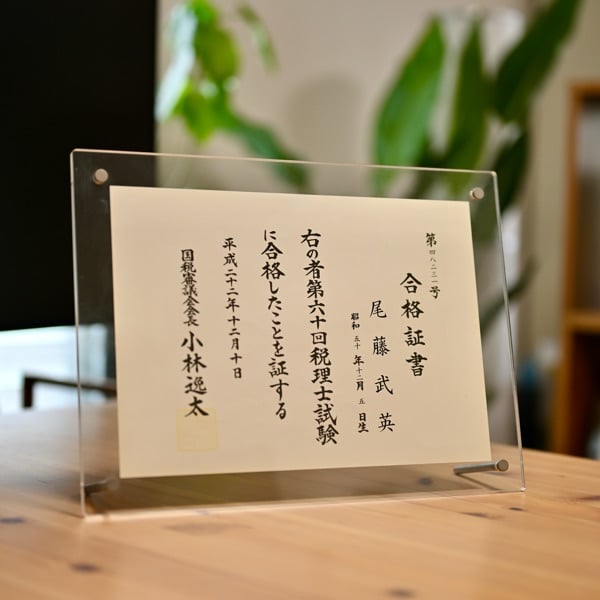 第四八二三一号
合格証書
尾藤武英
昭和五十年十二月五日生
右の者第六十回税理士試験
に合格したことを証する
平成二十二年十二月十日
国税審議会会長 小林逸太